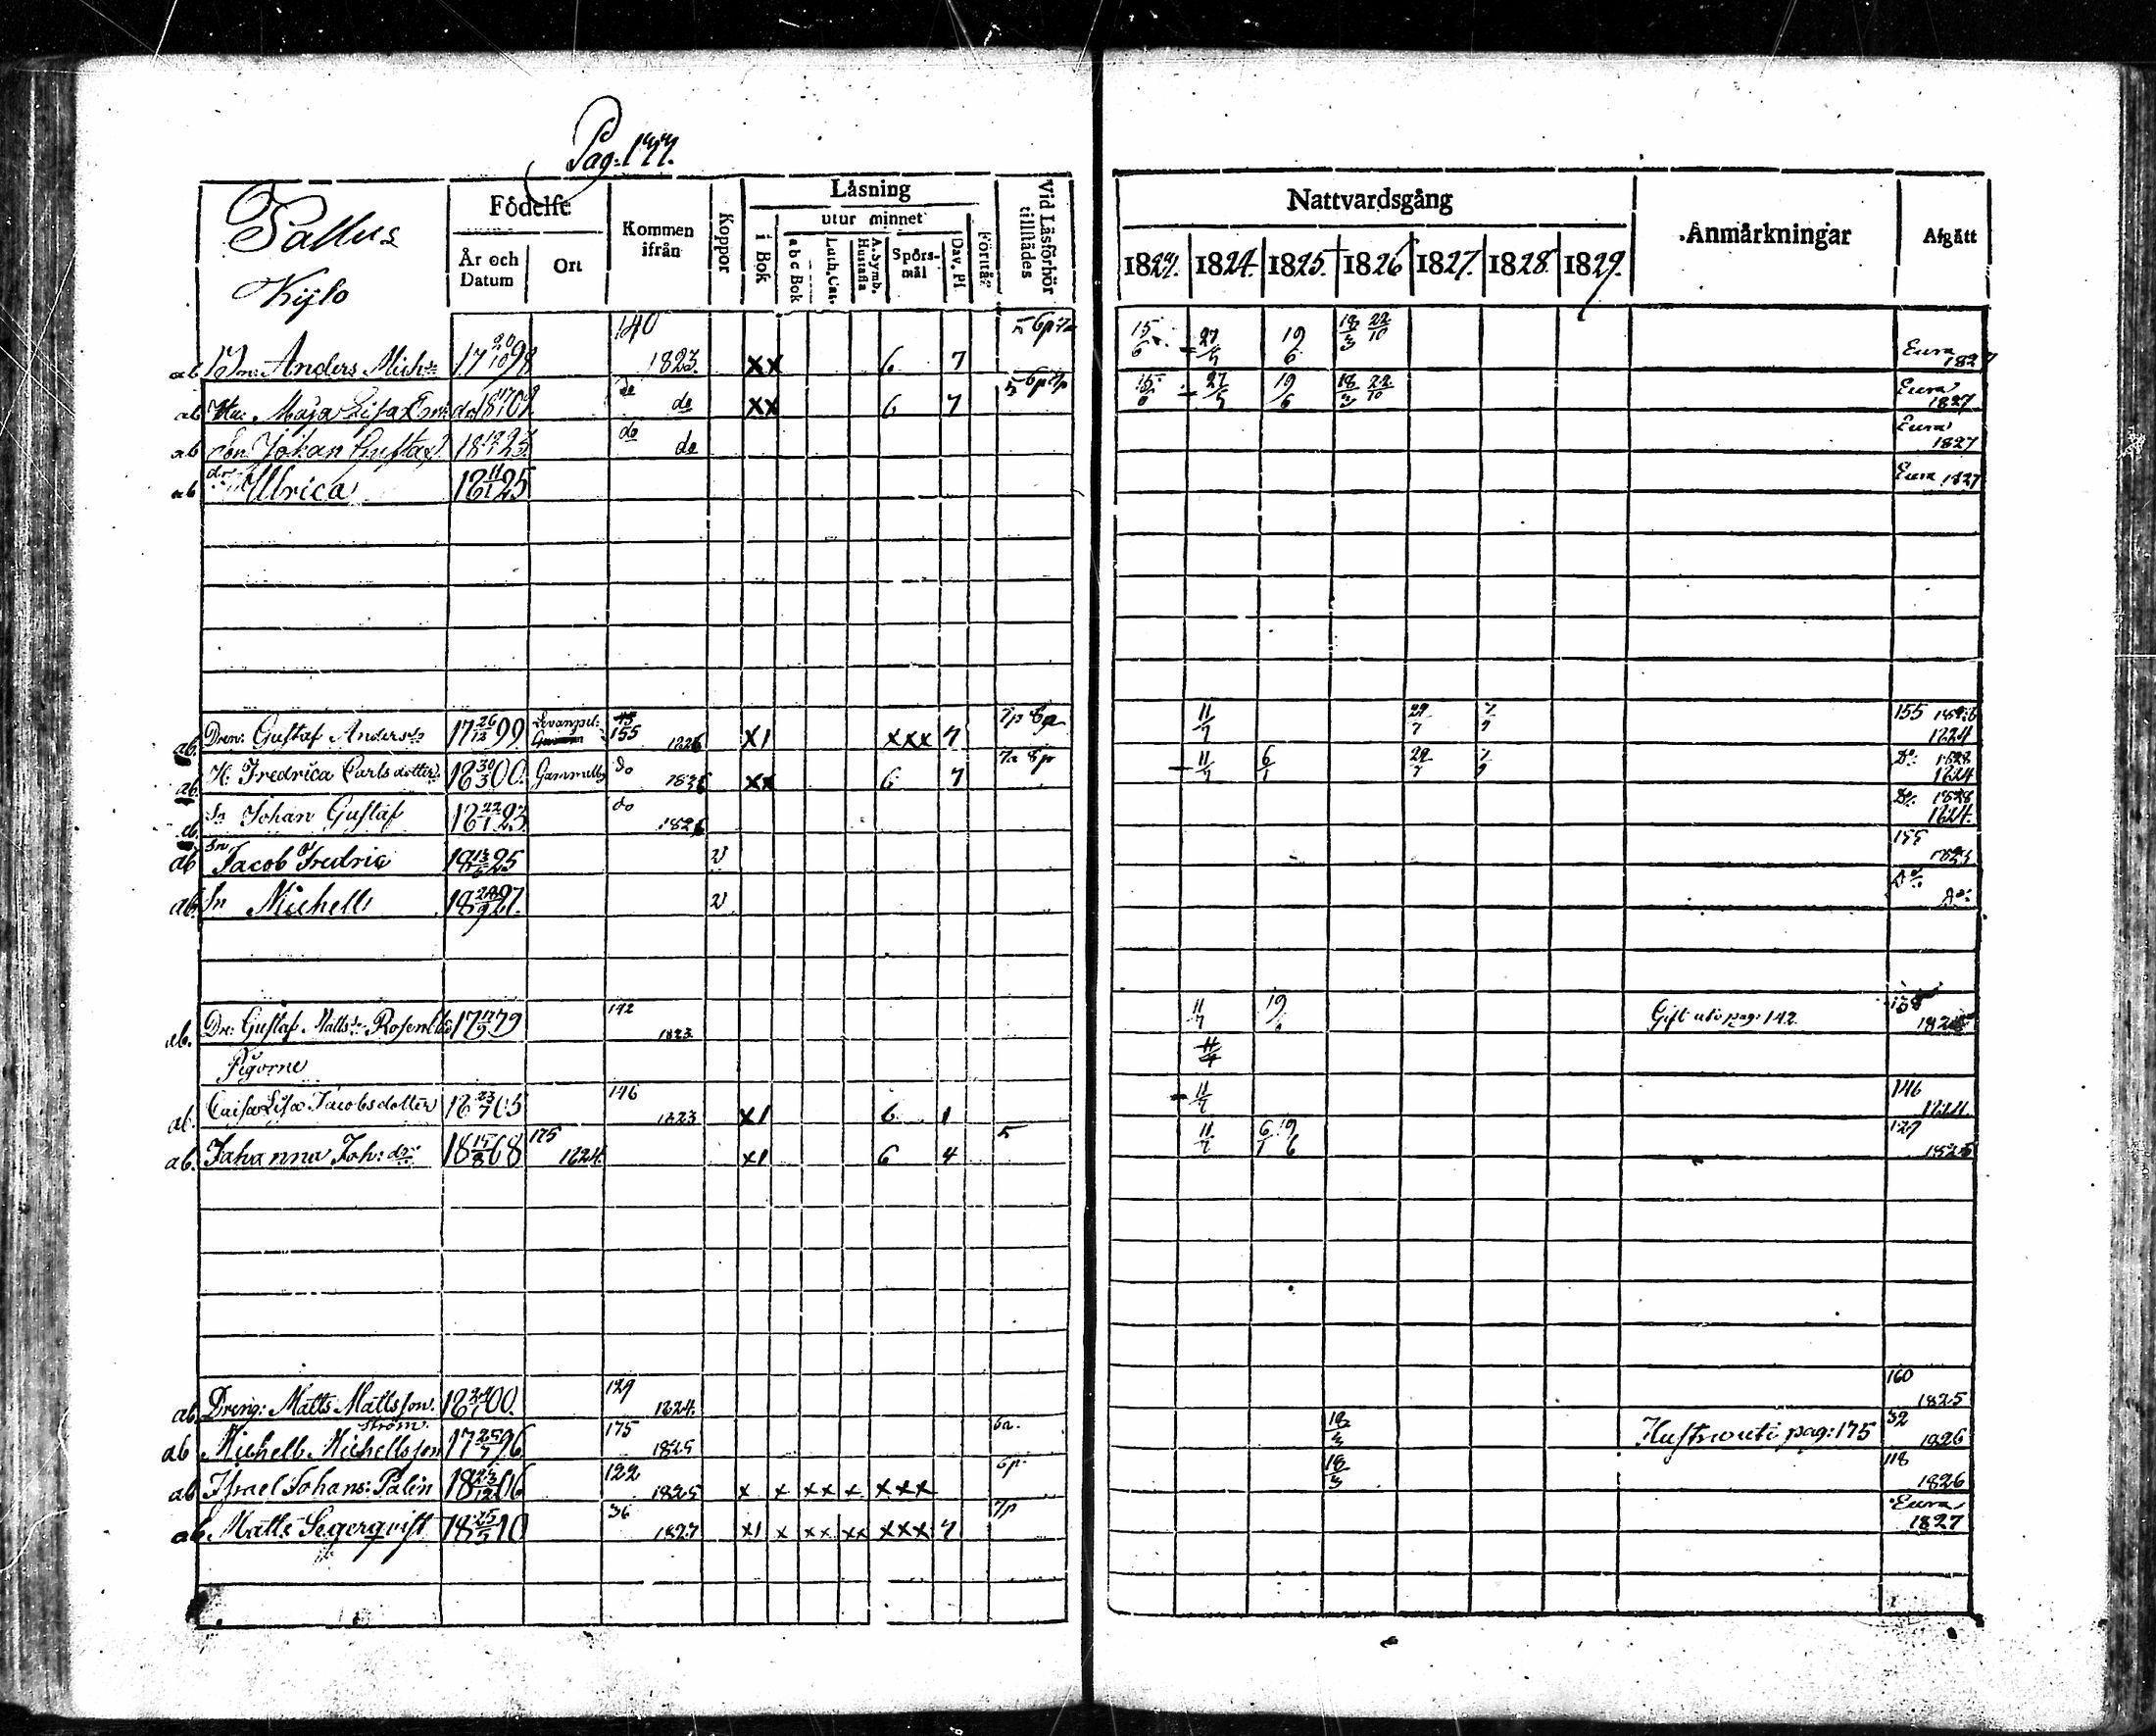 Pag: 177.
Tallus
Kylo
Födelse
År och Datum
Ort
Kommen ifrån
Koppor
Låsning
i Bok
utur minnet
a b c Bok
Luth. Cat.
A. Symb. Hustafla
Spörs-mål
Dav. Ps
Förstår
Vid Läsförhör tillstädes
Nattvardsgång
1823. 1824. 1825. 1826 1827. 1828 1829.
Anmärkningar
Afgått
ab Anders Mich:s 17 20/10 98 140 1823 xx 6 7 15/6 27/5 19/6 18/3 22/10 Eura 1827
ab Hu: Maja Lisa do de xx 6 7 27/5 19/6 18/3 22/10 Eura 1827
ab Son Johan Gustaf 23 do de Eura 1827
ab dr Ulrica 18 11/1 25 Eura 1827
ab. Dren: Gustaf Anders:n 17 26/12 99 155 1826 x1 xxx 7 7p 8p 11/7 29/7 155 1828 1824
ab. H: Fredrica Carlsdotter 18 30/3 00. Gammelby do 1826 xx 6 7 7a 8p 11/7 6/1 29/7 Do: 1828 1824
ab. Sn Johan Gustaf 18 22/1 23 do 1826 Do: 1828 1824.
ab Sn Jacob Fredric 18 25 v 155
ab. Sn Michell 18 28/9 27. v Do: Do:
ab. Dre: Gustaf Matts:n 17 79 142 1823 11/7 19/6 Gift uti pag: 142.
Pigorne 11/7
ab. Caisa Lisa Jacobsdotter 18 23/7 05 146 1823 x1 6 1 11/7 146 1824.
ab. Johanna Joh: dr 18 08 175 1824. x1 6 4 5 11/7 6/1 19/6 127 1825
ab. Dreng: Matts Mattsson. 18 00. 129 1824. 160 1825
Ström
ab Michell Michellsson 17 25/7 96 175 1825 6a. 18/3 Hustrun uti pag: 175 32 1826
ab Israel Johans: Palin 18 23/12 06 122 1825 x x xx x xxx 6p. 18/3 118 1826
ab. Matts Segerqvist 18 25/5 10 36 1827 x1 x xx xx xxx 7 7p Eura 1827